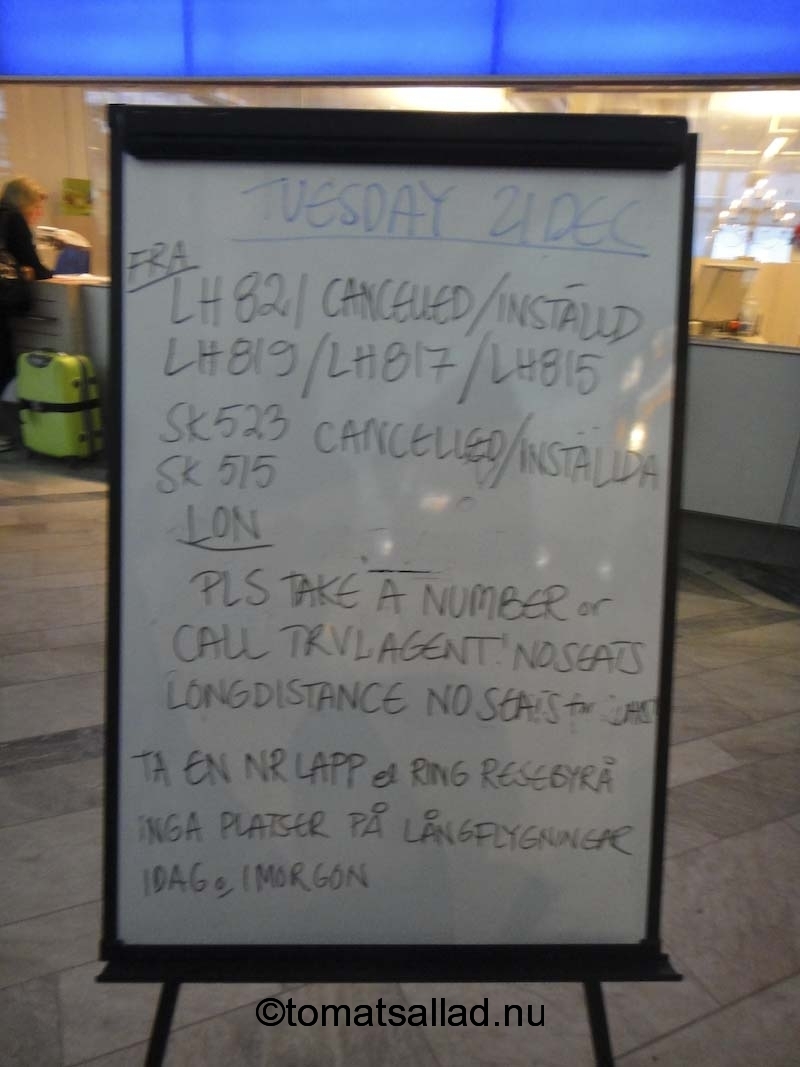 TUESDAY 21 DEC
FRA
LH 821 CANCELLED/INSTÄLLD
LH819/LH817/LH815
SK523 CANCELLED/INSTÄLLDA
SK 515
LON
PLS TAKE A NUMBER or
CALL TRVLAGENT! NO SEATS
LONGDISTANCE NO SEATS for
TA EN NR LAPP el RING RESEBYRÅ
INGA PLATSER PÅ LÅNGFLYGNINGAR
IDAG o IMORGON
©tomatsallad.nu